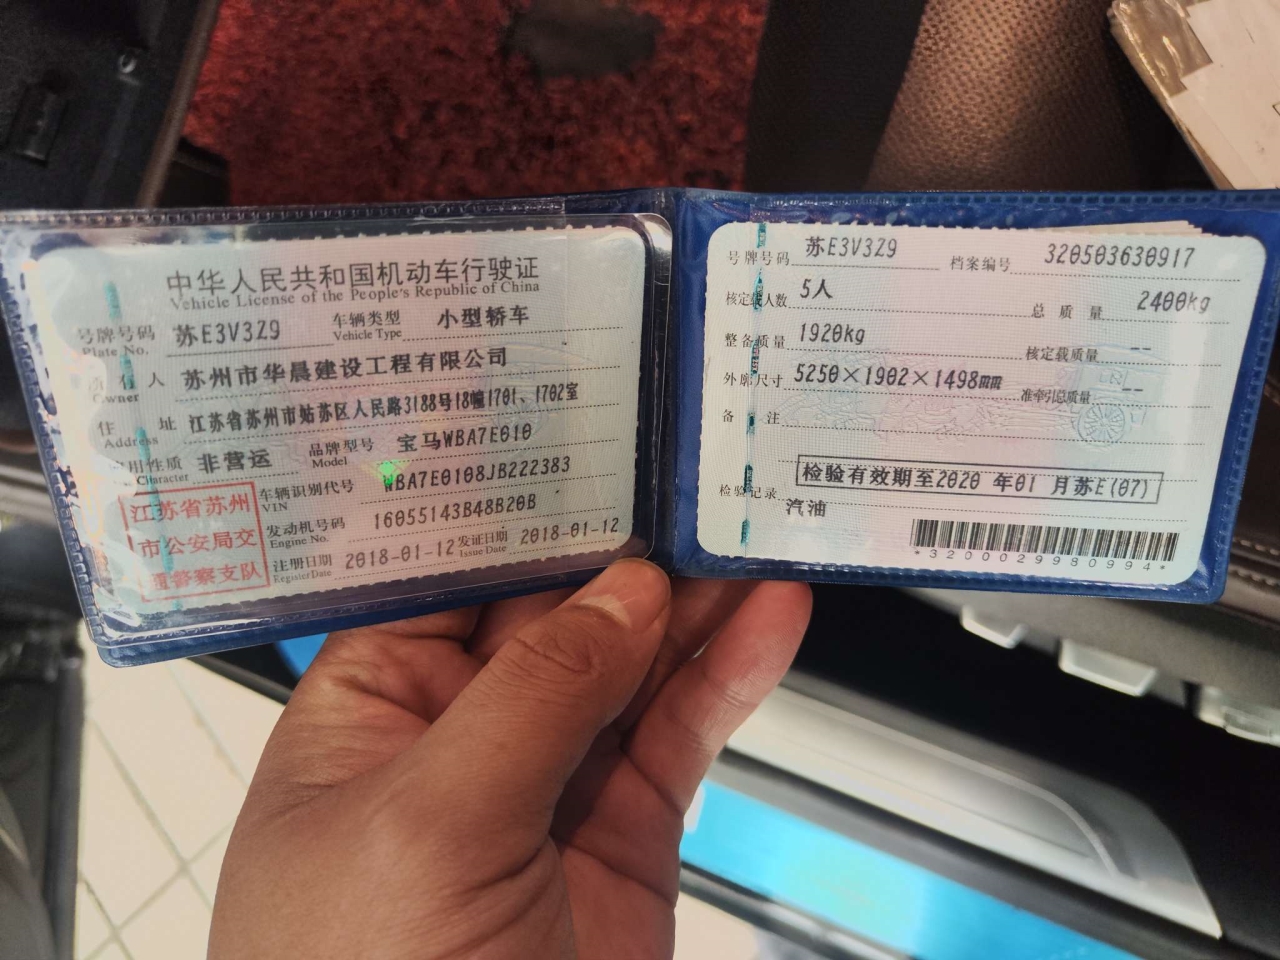 中华人民共和国机动车行驶证
Vehicle License of the People's Republic of China
号牌号码 苏E3V3Z9 车辆类型 小型轿车
Plate No. Vehicle Type
所有人 苏州市华晨建设工程有限公司
Owner
住址 江苏省苏州市姑苏区人民路3188号18幢1701、1702室
Address
使用性质 非营运 品牌型号 宝马WBA7E010
Character Model
车辆识别代号 WBA7E0108JB222383
VIN
发动机号码 16055143B48B20B
Engine No.
注册日期 2018-01-12 发证日期 2018-01-12
Register Date Issue Date
江苏省苏州
市公安局交
通警察支队
号牌号码 苏E3V3Z9 档案编号 320503630917
核定载人数 5人 总质量 2400kg
整备质量 1920kg 核定载质量 --
外廓尺寸 5250×1902×1498mm 准牵引总质量 --
备注
检验有效期至2020 年01 月苏E(07)
检验记录
汽油
*3200029980994*